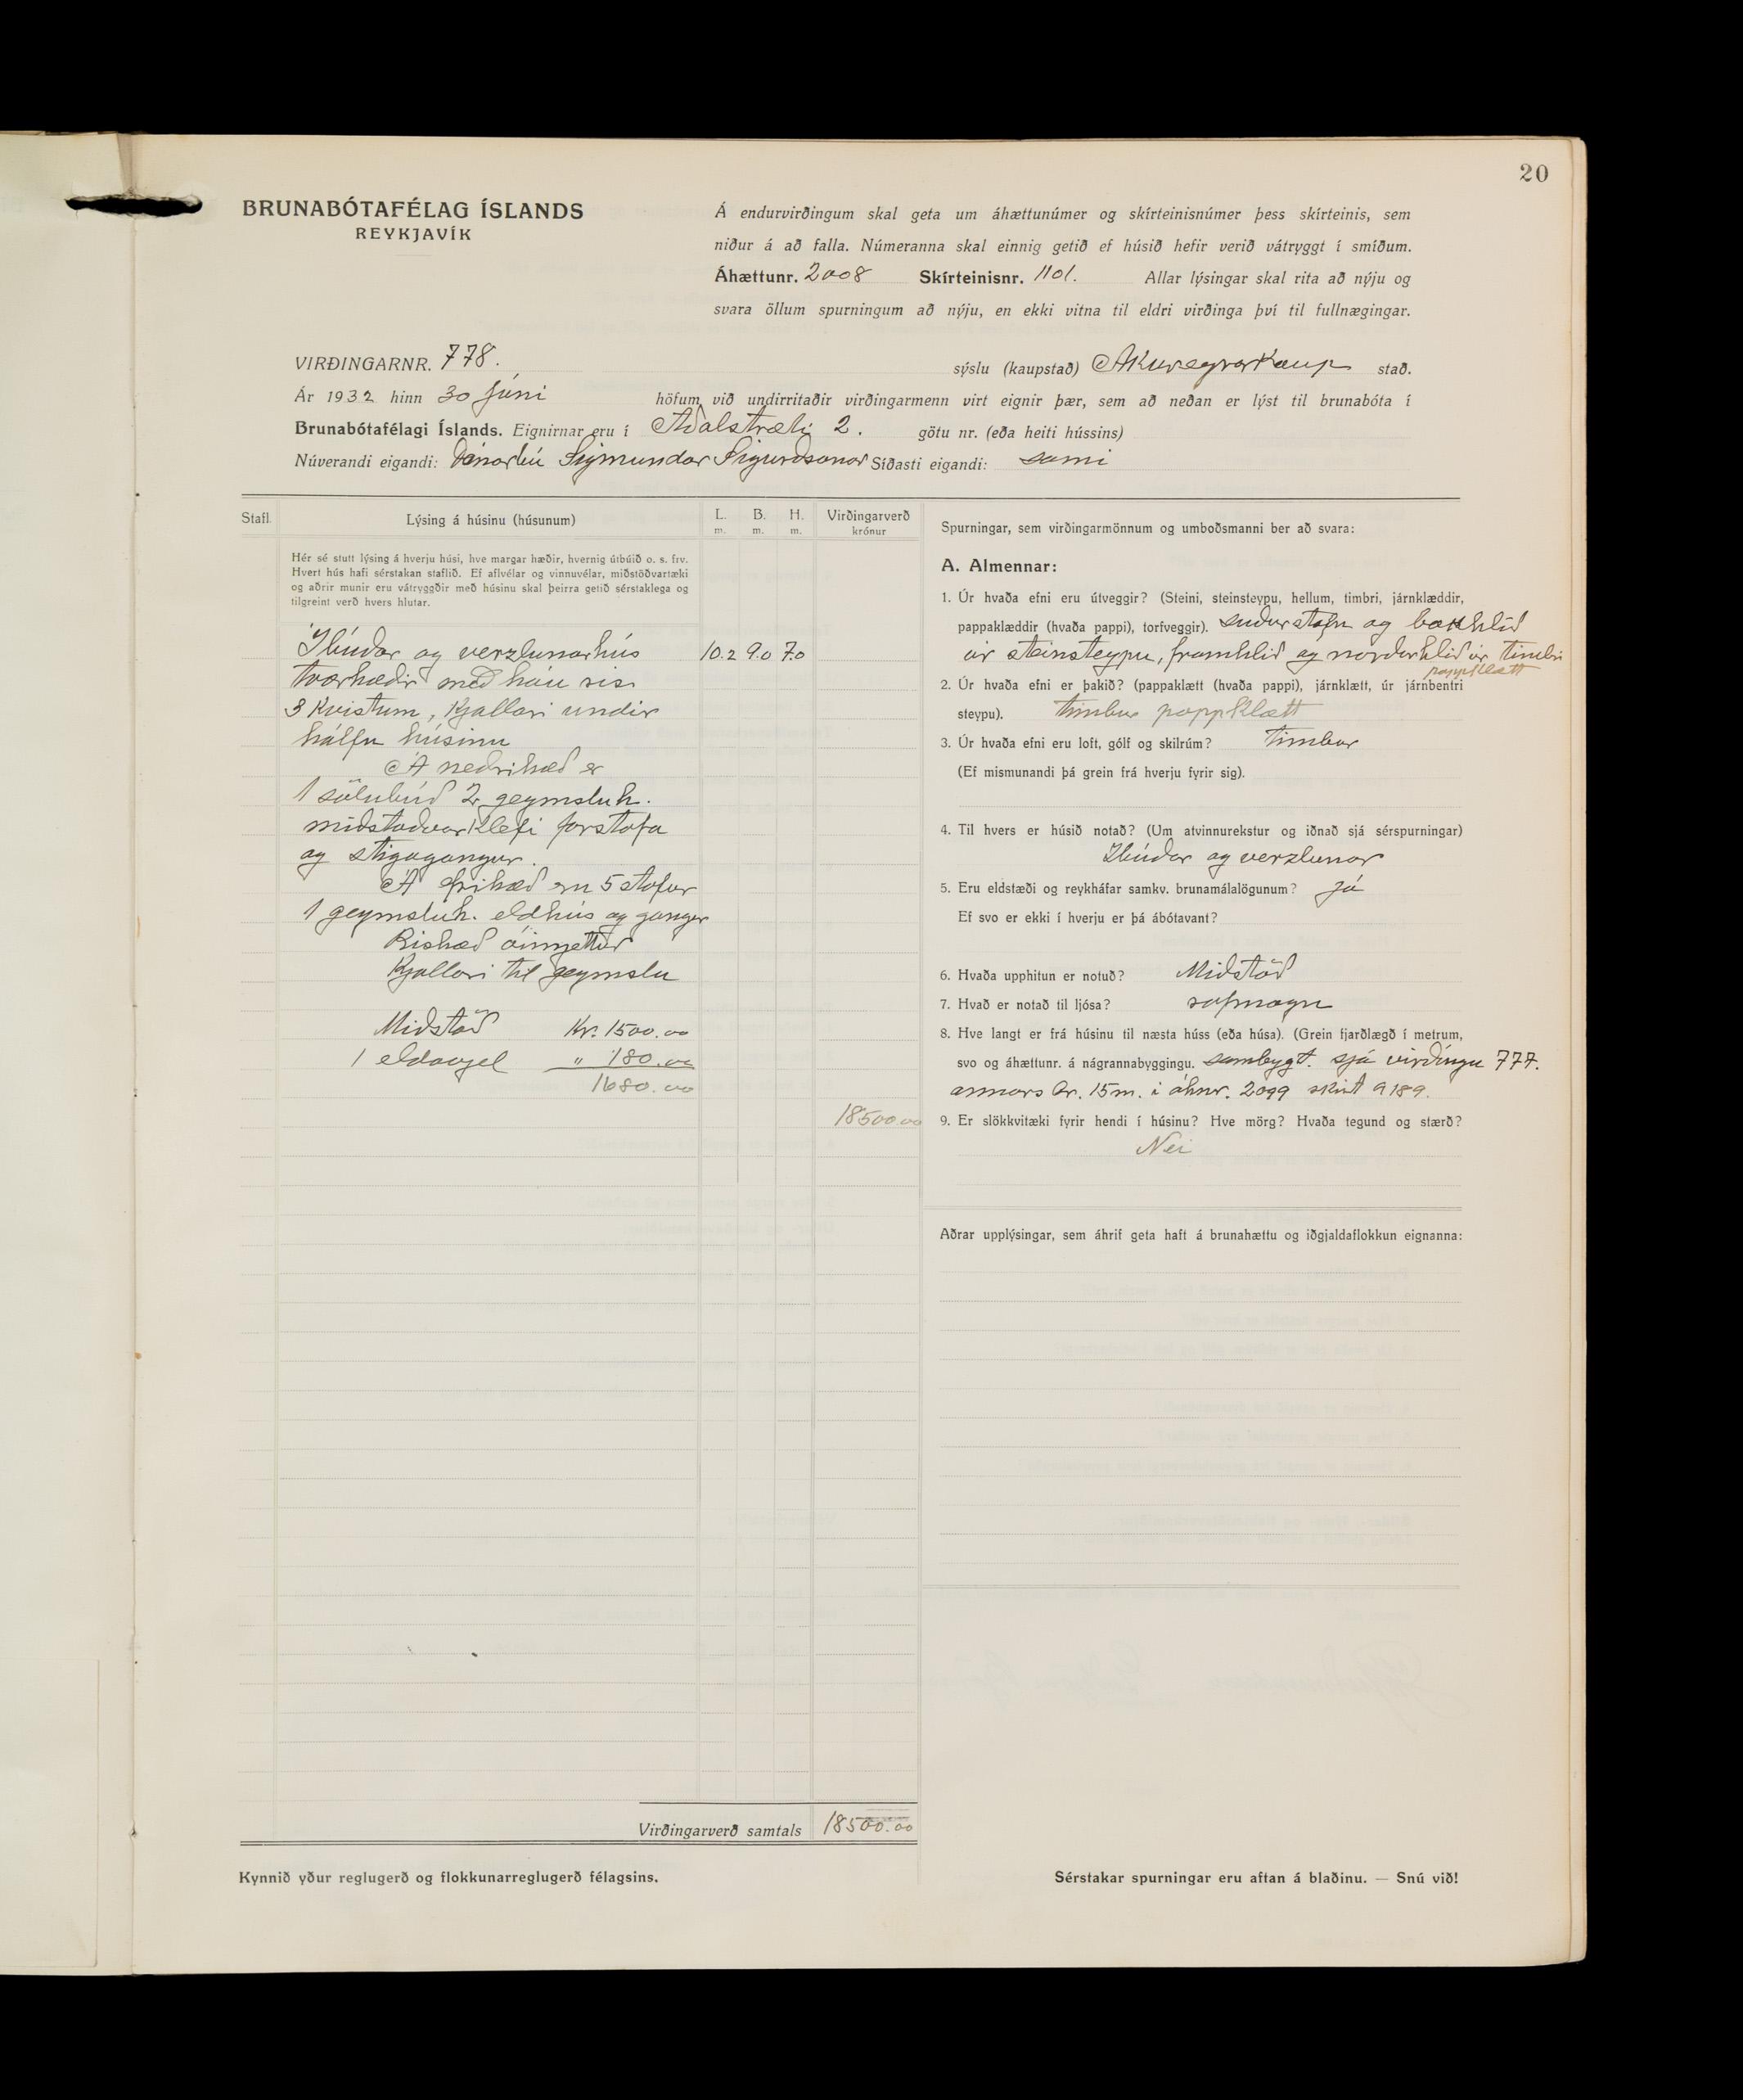 20
BRUNABÓTAFÉLAG ÍSLANDS
REYKJAVÍK
Á endurvirðingum skal geta um áhættunúmer og skírteinisnúmer þess skírteinis, sem
niður á að falla. Númeranna skal einnig getið ef húsið hefir verið vátryggt í smíðum.
Áhættunr. 2008 Skírteinisnr. 1101. Allar lýsingar skal rita að nýju og
svara öllum spurningum að nýju, en ekki vitna til eldri virðinga því til fullnægingar.
VIRÐINGARNR. 778. sýslu (kaupstað) Akureyrarkaup stað.
Ár 1932 hinn 30 júni höfum við undirritaðir virðingarmenn virt eignir þær, sem að neðan er lýst til brunabóta í
Brunabótafélagi Íslands. Eignirnar eru í Aðalstræti 2. götu nr. (eða heiti hússins)
Núverandi eigandi: Dánarbú Sigmundar Sigurðsonar Síðasti eigandi: sami
Stafl. Lýsing á húsinu (húsunum) L. m. B. m. H. m. Virðingarverð krónur
Hér sé stutt lýsing á hverju húsi, hve margar hæðir, hvernig útbúið o. s. frv.
Hvert hús hafi sérstakan staflið. Ef aflvélar og vinnuvélar, miðstöðvartæki
og aðrir munir eru vátryggðir með húsinu skal þeirra getið sérstaklega og
tilgreint verð hvers hlutar.
Íbúðar og verzlunarhús 10.2 9.0 7.0
tvær hæðir með háu ris
3 kvistum, kjallari undir
hálfu húsinu
Á neðrihæð er
1 sölubúð 2 geymsluh.
miðstöðvarklefi forstofa
og stigagangur.
Á efrihæð eru 5 stofur
1 geymsluh. eldhús og gangur
Rishæð óinnrettuð
Kjallari til geymslu
Miðstöð Kr. 1500.00
1 eldavjel " 180.00
1680.00
18500.00
Virðingarverð samtals 18500.00
Spurningar, sem virðingarmönnum og umboðsmanni ber að svara:
A. Almennar:
1. Úr hvaða efni eru útveggir? (Steini, steinsteypu, hellum, timbri, járnklæddir,
pappaklæddir (hvaða pappi), torfveggir). suðurstafn og bakhlið
úr steinsteypu, framhlið og norðurhlið úr timbri
pappklætt
2. Úr hvaða efni er þakið? (pappaklætt (hvaða pappi), járnklætt, úr járnbentri
steypu). timbur pappklætt
3. Úr hvaða efni eru loft, gólf og skilrúm? timbur
(Ef mismunandi þá grein frá hverju fyrir sig).
4. Til hvers er húsið notað? (Um atvinnurekstur og iðnað sjá sérspurningar)
Íbúðar og verzlunar
5. Eru eldstæði og reykháfar samkv. brunamálalögunum? Já
Ef svo er ekki í hverju er þá ábótavant?
6. Hvaða upphitun er notuð? Miðstöð
7. Hvað er notað til ljósa? rafmagn
8. Hve langt er frá húsinu til næsta húss (eða húsa). (Grein fjarðlægð í metrum,
svo og áhættunr. á nágrannabyggingu. sambygt. sjá virðingu 777.
annars ca. 15 m. i áhnr. 2099 skirt 9189.
9. Er slökkvitæki fyrir hendi í húsinu? Hve mörg? Hvaða tegund og stærð?
Nei
Aðrar upplýsingar, sem áhrif geta haft á brunahættu og iðgjaldaflokkun eignanna:
Kynnið yður reglugerð og flokkunarreglugerð félagsins.
Sérstakar spurningar eru aftan á blaðinu. — Snú við!